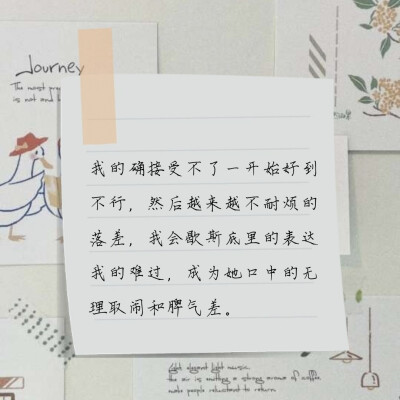 Journey
我的确接受不了一开始好到
不行，然后越来越不耐烦的
落差，我会歇斯底里的表达
我的难过，成为她口中的无
理取闹和脾气差。
the air is exiting a strong aroma of coffee
make people reluctant to return